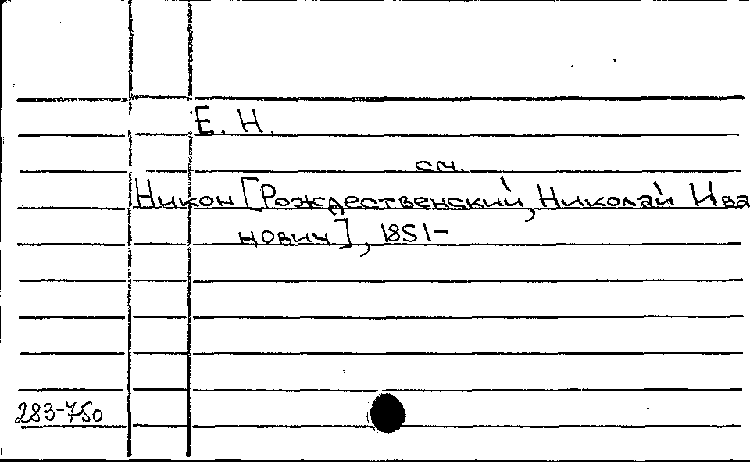 Е. Н.
см.
Никон [Рождественский, Николай Ива
нович], 1851-
283-750